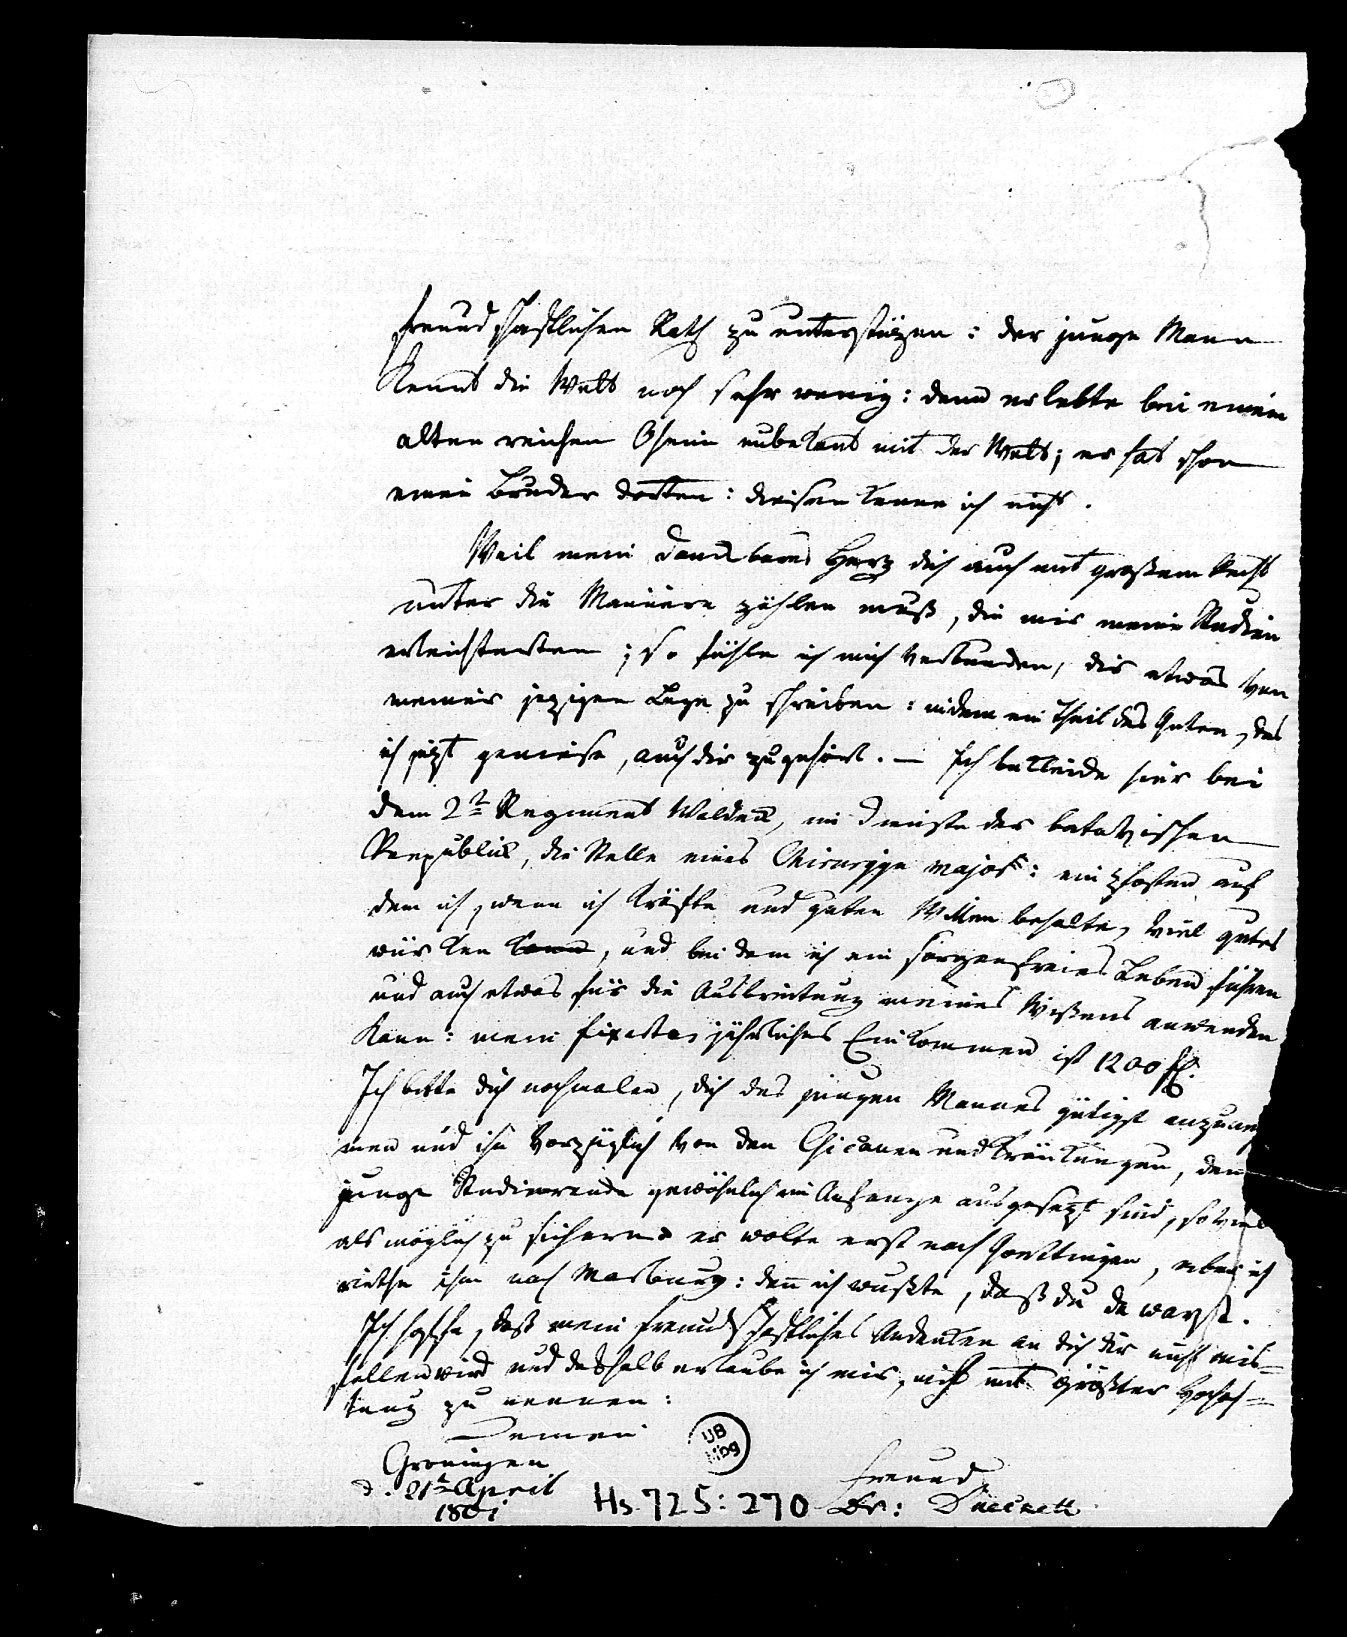 freundschaftlichen Rath zu unterstüzen: der junge Mann
kennt die Welt noch sehr wenig: denn er lebte bei einem
alten reichen Oheim unbekant mit der Welt; er hat schon
einen Bruder dorten: diesen kenne ich nicht.
Weil mein dankbares Herz dich auch mit großem Recht
unter die Männere zählen muß, die mir meine Studien
erleichterten; so fühle ich mich verbunden, dir etwas von
meiner jezigen Lage zu schreiben: indem ein Theil des Guten, das
ich jezt geniese, auch dir zugehört. — Ich bekleide hier bei
dem 2n Regiment Waldeck, im Dienste der batavischen
Republik, die Stelle eines Chirurgge major: ein Posten auf
dem ich, wenn ich Kräfte und guten Willen behalte, viel gutes
würken kann, und bei dem ich ein sorgenfreies Leben führen
und auch etwas für die Ausbreitung meines Wißens anwenden
kann: mein fixertes jährliches Einkommen ist 1200 fl.
Ich bitte dich nochmalen, dich des jungen Mannes gütigst anzuneh
men und ihn vorzüglich von den Chicanen und Kränkungen, den
junge Studierende gewöhnlich im Anfange ausgesezt sind, so viel
als möglich zu sichern er wolte erst nach Goettingen, aber ich
riethe ihm nach Marburg: denn ich wußte, daß du da warst.
Ich hoffe, daß mein freundschaftliches Andenken an dich dir nicht mis-
fallen wird und deshalb erlaube ich mir, mich mit größter Hochach-
tung zu nennen:
Deinen
Groningen
d. 21t April
1801
Freund
Dr:
UB
Mbg
Hs 725:270